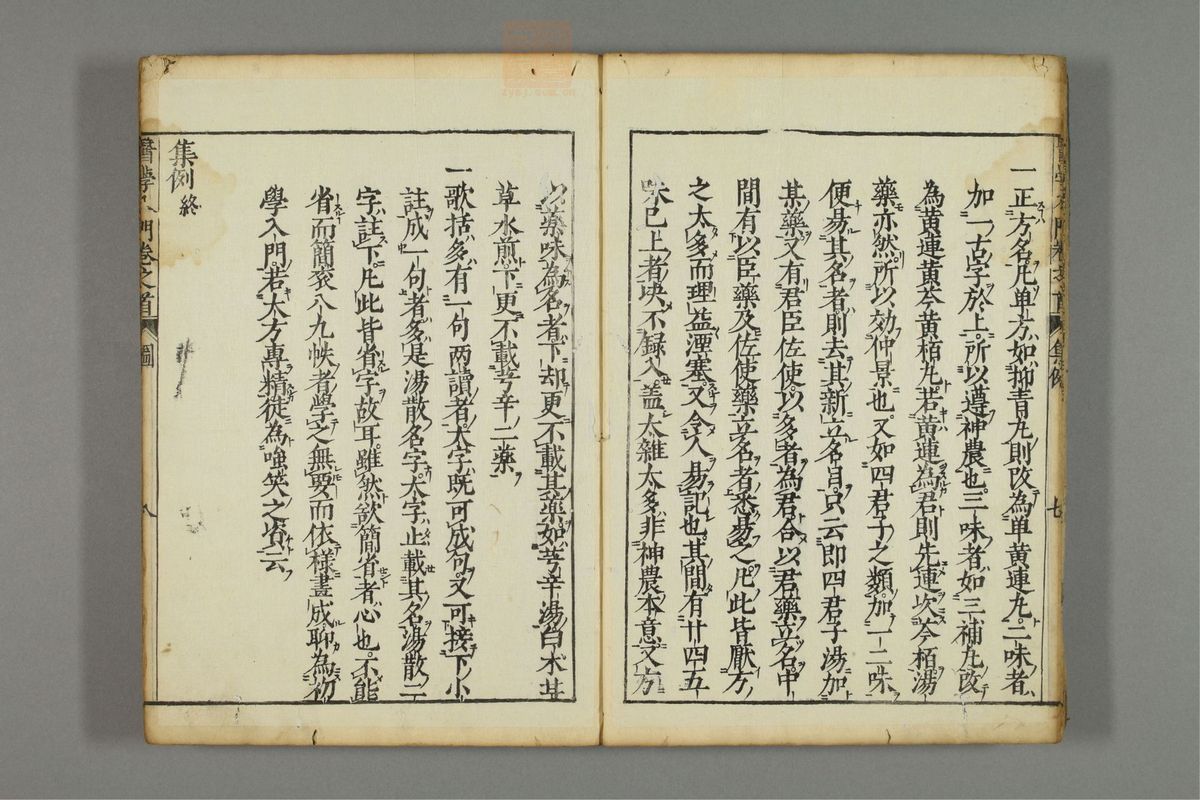 一正方名凡单方如抑青丸則改為单黄連丸二味者
加一古字於上所以遵神農也三味者如三補丸改
為黄連黄芩黄栢丸若黄連為君則先連次芩栢湯
藥亦然所以効仲景也又如四君子之類加一二味
便易其名者則去其新立名目只云即四君子湯加
某藥又有君臣佐使以多者為君合以君藥立名中
間有以臣藥及佐使藥立名者悉易之凡此皆厭方
之太多而理益湮塞又令人易記也其間有廿四五
味已上者决不録入盖太雜太多非神農本意又方
以藥味為名者下却更不載其藥如芎辛湯白木甘
草水煎下更不載芎辛二藥
一歌括多有一句两讀者大字既可成句又可接下小
註成一句者多是湯散名字大字止載其名湯散二
字註下凡此皆省字故耳雖然欲簡省者心也不能
省而簡袠八九帙者學之無要而依樣畫成聊為初
學入門若大方專精徒為嗤笑之資云
集例終
醫學入門卷之首
圖
八
集例
七